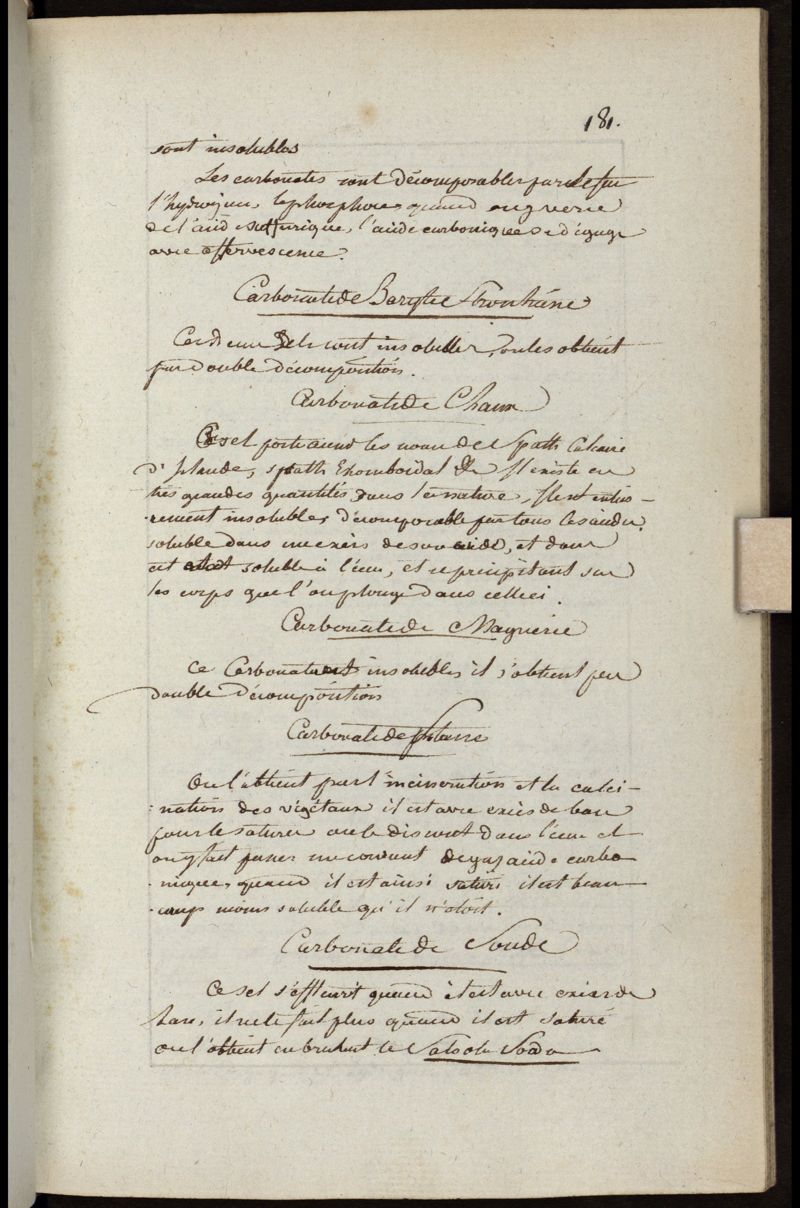 181.
sont insolubles
Les carbonates sont décomposables par le feu
l'hydrogene, le phosphore, quand on y verse
de l'acide sulfurique, l'acide carbonique se dégage
avec effervescence.
Carbonate de Baryte Strontiane
Ces deux Sels sont insolubles, on les obtient
par double décomposition.
Carbonate de Chaux
Ce sel porte aussi les nom de Spath Calcaire
d'Islande, spath Rhomboidal &c Il existe en
très grandes quantités dans la nature, Il est entie-
-rement insoluble, décomposable par tous les acides
soluble dans un excès de son acide, et dans
cet etat soluble à l'eau, et se précipitant sur
les corps que l'on plonge dans celle ci.
Carbonate de Magnesie
Ce Carbonate est insoluble, il s'obtient par
double décomposition
Carbonate de Potasse
On l'obtient par l'incineration et la calci-
-nation des végétaux il est avec excès de base
pour le saturer on le dissout dans l'eau et
on y fait passer un courant de gaz acide carbo
-nique, quand il est ainsi saturé il est beau-
-coup moins soluble qu'il n'étoit.
Carbonate de Soude
Ce sel s'effleurit quand il est avec excès de
base, il ne le fait plus quand il est saturé
on l'obtient en brulant le Salsola Soda